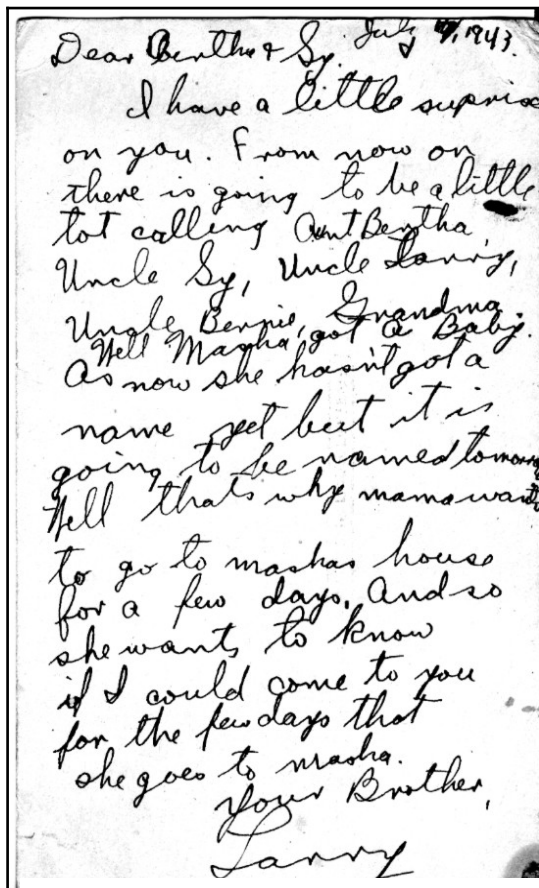 July 1943.
Dear Bertha & Sy.
I have a little supris
on you. From now on
there is going to be a little
tot calling Aunt Bertha,
Uncle Sy, Uncle Larry,
Uncle Bernie, Grandma.
Well Masha got a Baby.
As now she hasn't got a
name yet but it is
going to be named tomorrow
Well thats why mama wants
to go to mashas house
for a few days. And so
she wants to know
if I could come to you
for the few days that
she goes to masha.
your Brother,
Larry